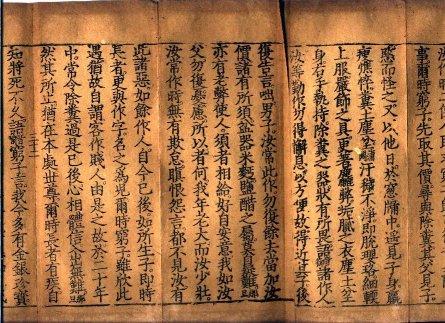 事爾時窮子先取其價尋與除糞其父見子
愍而怪之又以他日於窓牖中遥見子身羸
瘦憔悴糞土塵坌汙穢不淨即脫瓔珞細軟
上服嚴飾之具更著麤弊垢膩之衣塵土坌
身右手執持除糞之器狀有所畏語諸作人
汝等勤作勿得懈息以方便故得近其子後
復告言咄男子汝常此作勿復餘去當加汝
價諸有所須盆器米麵鹽醋之屬莫自疑難
亦有老弊使人須者相給好自安意我如汝
父勿復憂慮所以者何我年老大而汝少壯
汝常作時無有欺怠瞋恨怨言都不見汝有
此諸惡如餘作人自今已後如所生子即時
長者更與作字名之為兒爾時窮子雖欣此
遇猶故自謂客作賤人由是之故於二十年
中常令除糞過是已後心相體信入出無難
然其所止猶在本處世尊爾時長者有疾自
知將死不久語窮子言我今多有金銀珍寶